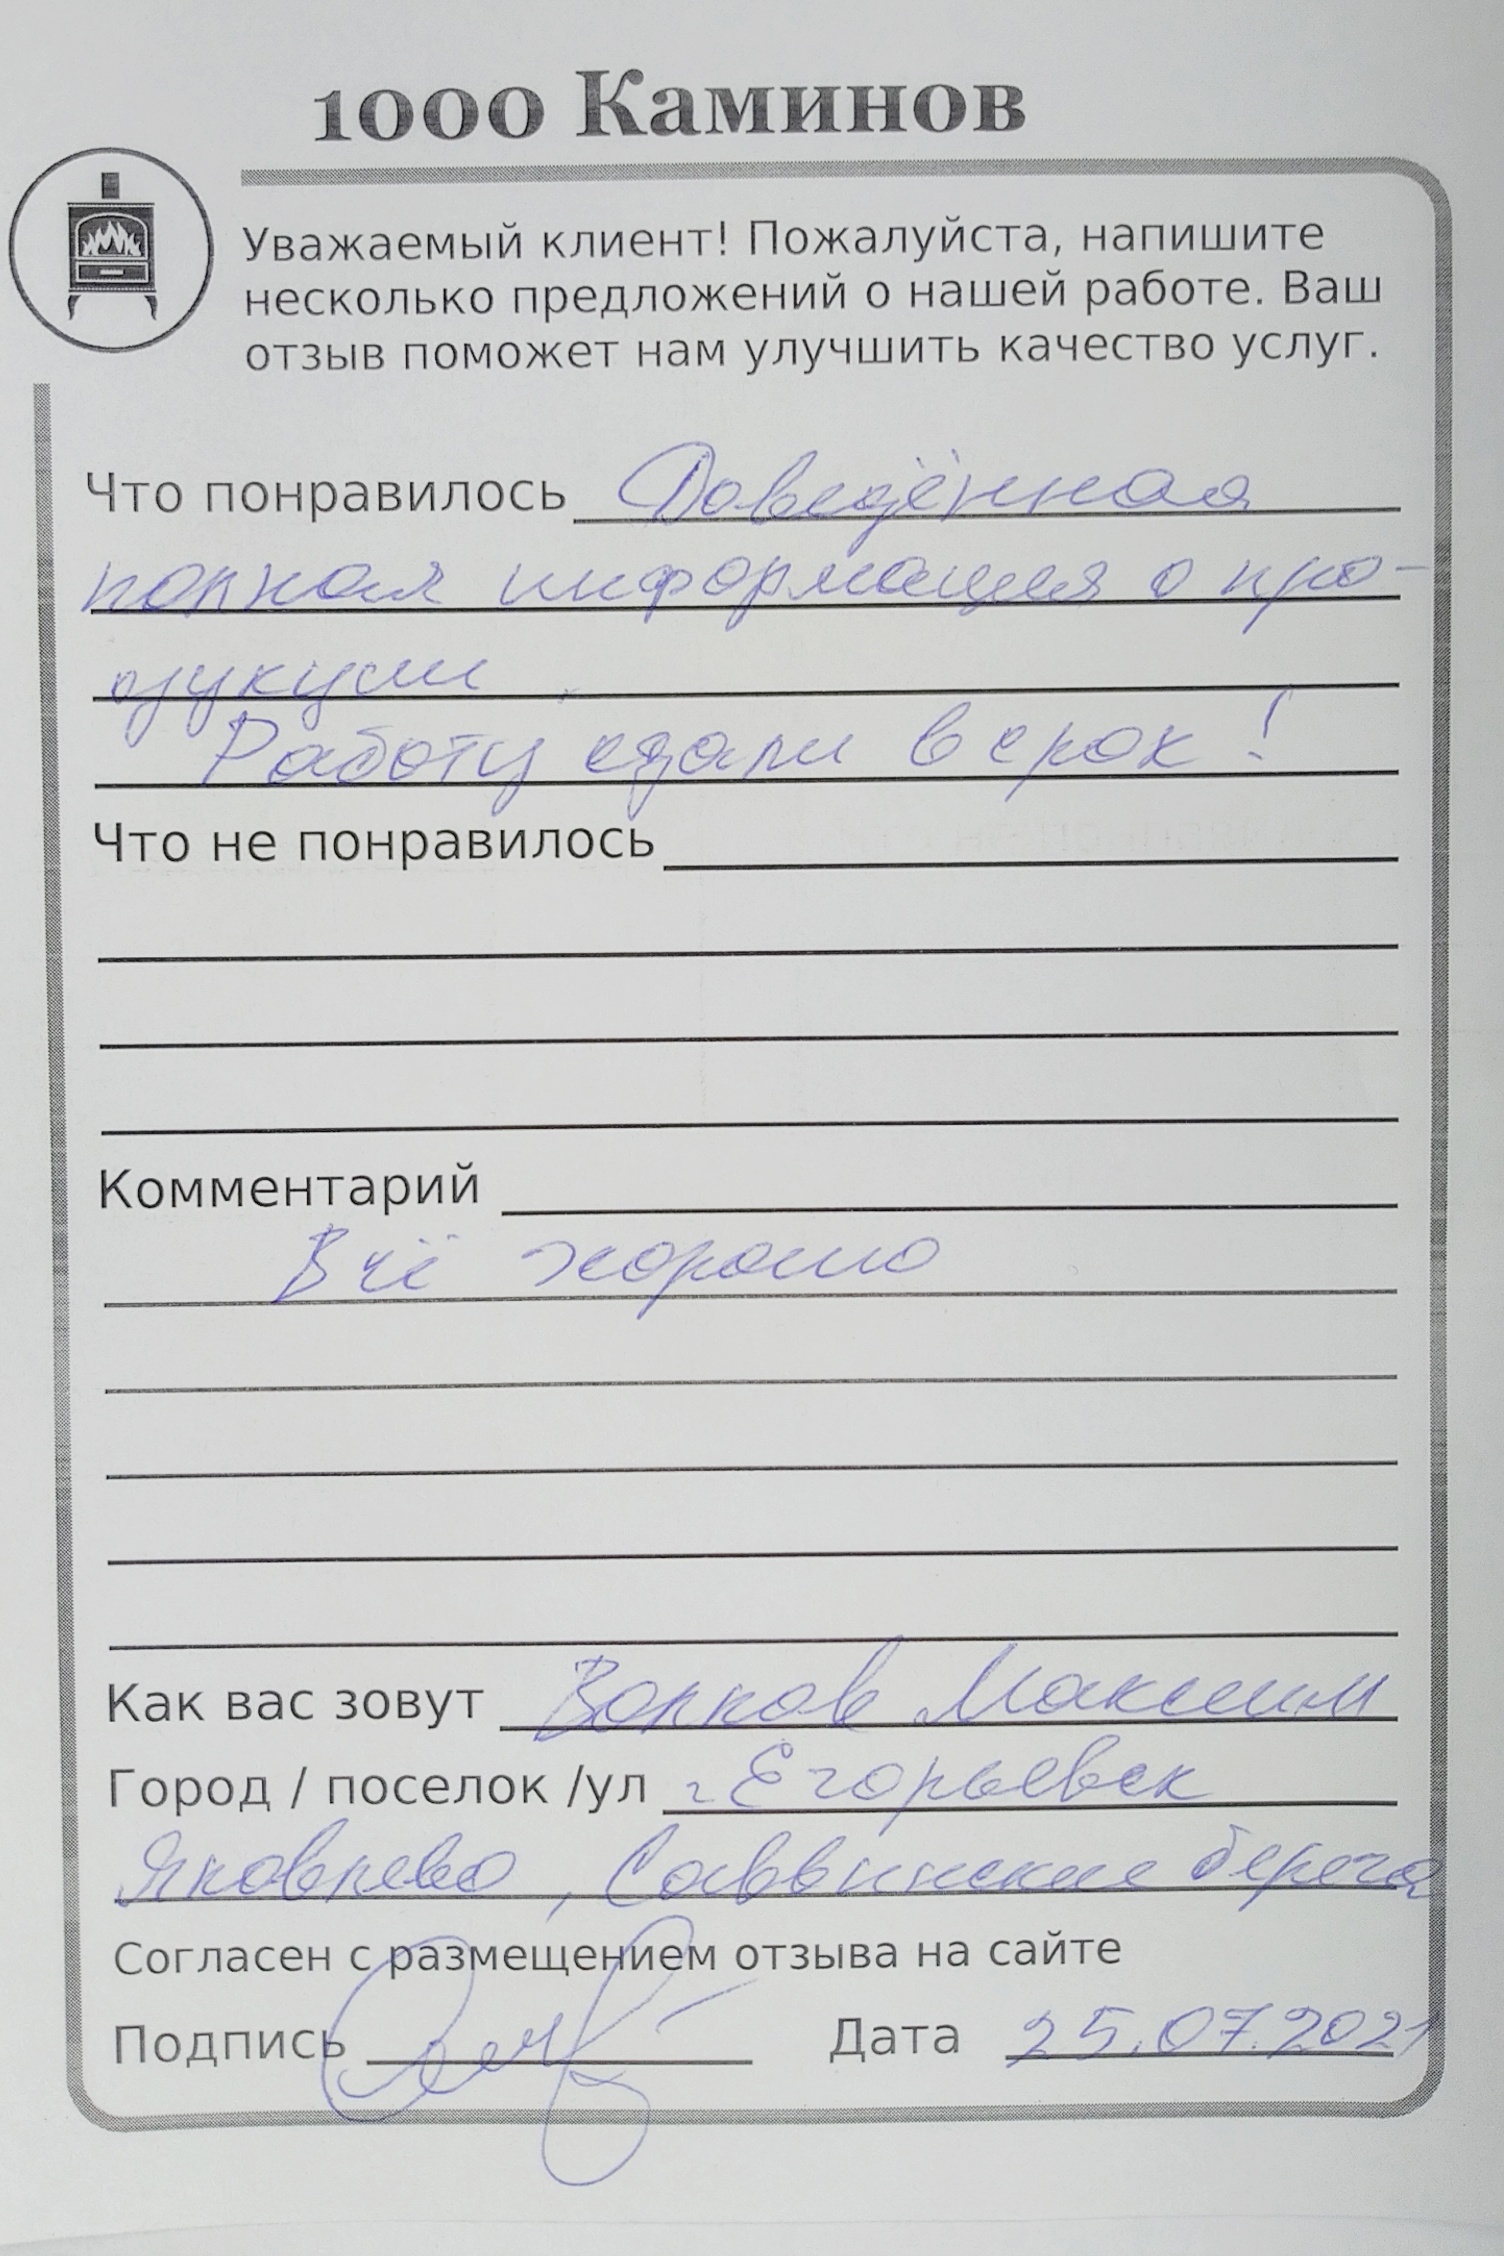 1000 Каминов
Уважаемый клиент! Пожалуйста, напишите
несколько предложений о нашей работе. Ваш
отзыв поможет нам улучшить качество услуг.
Что понравилось Доведённая
полная информация о про-
дукции.
Работу сдали в срок!
Что не понравилось
Комментарий
Всё хорошо
Как вас зовут Волков Максим
Город / поселок /ул г. Егорьевск
Яковлево, Саввинские берега
Согласен с размещением отзыва на сайте
Подпись Дата 25.07.2021